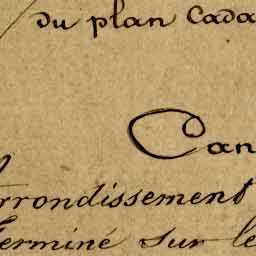 du plan Cada
Can
rrondissement
Terminé sur le